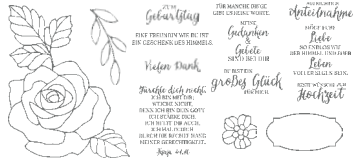 ZUM
Geburtstag
EINE FREUNDIN WIE DU IST
EIN GESCHENK DES HIMMELS.
Vielen Dank
Fürchte dich nicht,
ICH BIN MIT DIR;
WEICHE NICHT,
DENN ICH BIN DEIN GOTT.
ICH STÄRKE DICH,
ICH HELFE DIR AUCH,
ICH HALTE DICH
DURCH DIE RECHTE HAND
MEINER GERECHTIGKEIT.
Jesaja 41,10
FÜR MANCHE DINGE
GIBT ES KEINE WORTE.
MEINE
Gedanken
&
Gebete
SIND BEI DIR
DU BIST EIN
großes Glück
Anteilnahme
MÖGE EURE
Liebe
SO ENDLOS WIE
DER HIMMEL UND EUER
Leben
VOLLER GLÜCK SEIN.
ZUR
Hochzeit